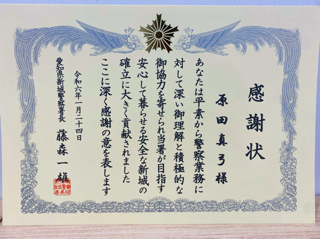 感謝状
原田真弓様
あなたは平素から警察業務に
対して深い御理解と積極的な
御協力を寄せられ当署が目指す
安心して暮らせる安全な新城の
確立に大きく貢献されました
ここに深く感謝の意を表します
令和六年一月二十四日
愛知県新城警察署長 藤森一雄